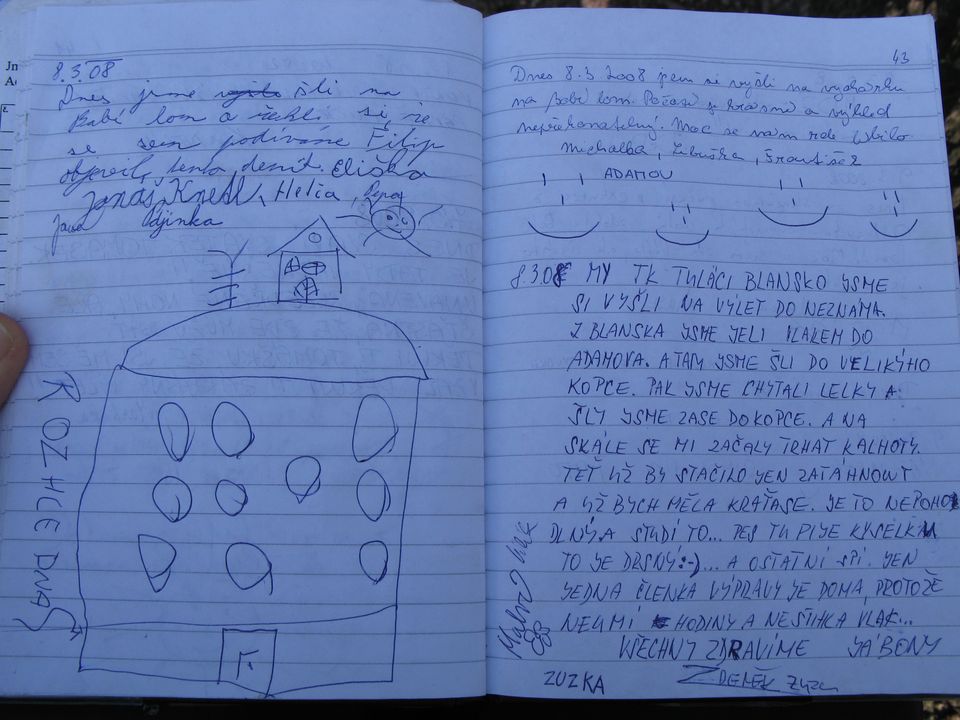 8.3.08
Dnes jsme šli na
Babí lom a řekli si že
se sem podíváme Filip
objevil tento deník. Eliška
Jonáš, Knedl, Helča, Pepa
Jana
ROZHLEDNA
43
Dnes 8.3.2008 jsem si vyšli na vycházku
na Babí lom. Počasí je krásné a výhled
nepřekonatelný. Moc se nám zde líbilo
Michalka, Libuška,
ADAMOV
8.3.08 MY TK TULÁCI BLANSKO JSME
SI VYŠLI NA VÝLET DO NEZNÁMA.
Z BLANSKA JSME JELI VLAKEM DO
ADAMOVA. A TAM JSME ŠLI DO VELIKÝHO
KOPCE. PAK JSME CHYTALI LELKY A
ŠLY JSME ZASE DO KOPCE. A NA
SKÁLE SE MI ZAČALY TRHAT KALHOTY.
TEŤ UŽ BY STAČILO JEN ZATÁHNOUT
A UŽ BYCH MĚLA KRAŤASE. JE TO NEPOHO
DLNÝ A STUDÍ TO... PES TU PIJE KYSELKU
TO JE DRSNÝ:-)... A OSTATNÍ SPÍ. JEN
JEDNA ČLENKA VÝPRAVY JE DOMA, PROTOŽE
NEUMÍ HODINY A NESTIHLA VLAK...
VŠECHNY ZDRAVÍME JÁBONY
ZUZKA ZDENĚK